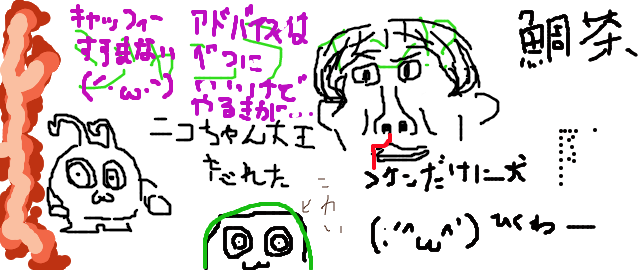 キャッフィー
すすまない
(´･ω･`)
アドバイスは
べつに
いいけど
やるきが…
鯛茶、
ニコちゃん大王
だれた
こわい
>ケンだけに犬
(;´^ω^`)
ひくわー